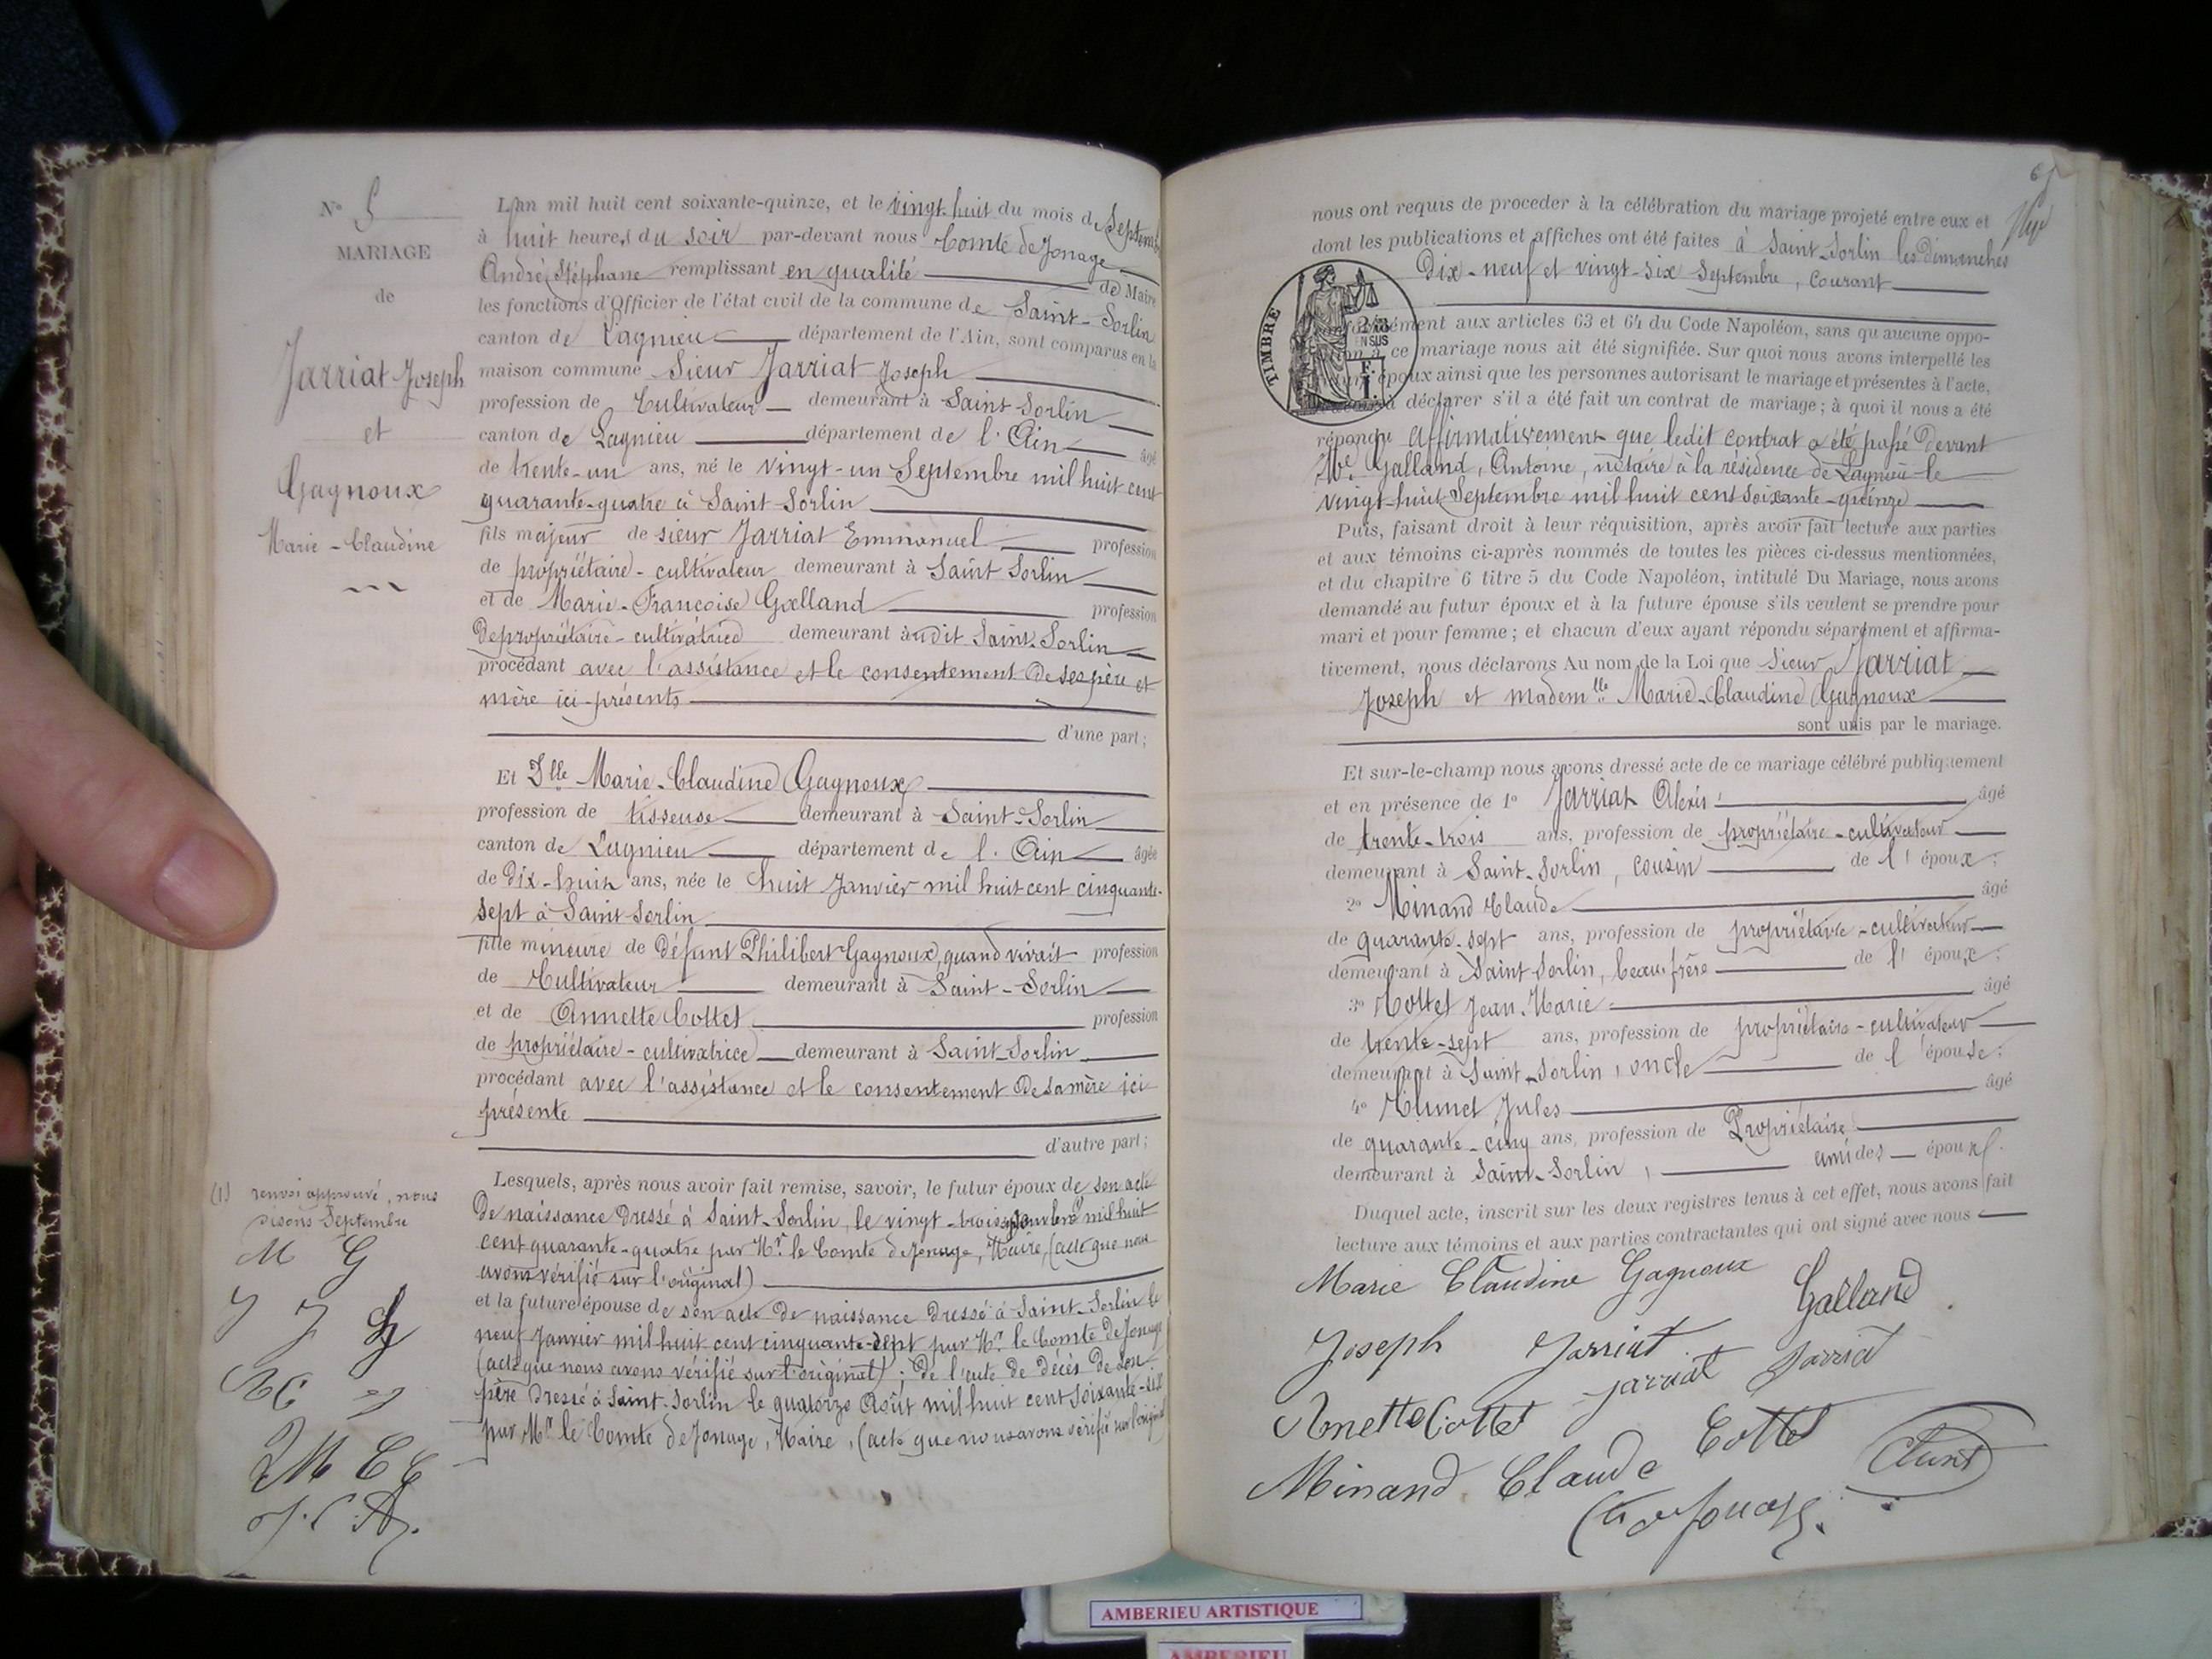 N° 5
MARIAGE
de
Jarriat Joseph
et
Gagnoux
Marie-Claudine
L'an mil huit cent soixante-quinze, et le vingt-huit du mois de Septembre
à huit heures du soir par-devant nous Comte de Jonage
André Stéphane remplissant en qualité de Maire
les fonctions d'Officier de l'état civil de la commune de Saint-Sorlin
canton de Lagnieu département de l'Ain, sont comparus en la
maison commune Sieur Jarriat Joseph
profession de Cultivateur demeurant à Saint-Sorlin
canton de Lagnieu département de l'Ain âgé
de trente-un ans, né le vingt-un Septembre mil huit cent
quarante-quatre à Saint-Sorlin
fils majeur de sieur Jarriat Emmanuel profession
de propriétaire-cultivateur demeurant à Saint Sorlin
et de Marie-Françoise Galland profession
de propriétaire-cultivatrice demeurant audit Saint-Sorlin
procédant avec l'assistance et le consentement de ses père et
mère ici présents
d'une part;
Et Dlle Marie-Claudine Gagnoux
profession de tisseuse demeurant à Saint-Sorlin
canton de Lagnieu département de l'Ain âgée
de Dix-huit ans, née le huit Janvier mil huit cent cinquante-
sept à Saint-Sorlin
fille mineure de Défunt Philibert Gagnoux, quand vivait profession
de Cultivateur demeurant à Saint-Sorlin
et de Annette Cottet profession
de propriétaire-cultivatrice demeurant à Saint-Sorlin
procédant avec l'assistance et le consentement de sa mère ici
présente
d'autre part;
Lesquels, après nous avoir fait remise, savoir, le futur époux de son acte
de naissance dressé à Saint-Sorlin, le vingt-trois mil huit
cent quarante-quatre par Mr. le Comte de Jonage, Maire, (acte que nous
avons vérifié sur l'original)
et la future épouse de son acte de naissance dressé à Saint-Sorlin le
neuf Janvier mil huit cent cinquante-sept par Mr. le Comte de Jonage
(acte que nous avons vérifié sur l'original); de l'acte de décès de son
père dressé à Saint-Sorlin le quatorze Août mil huit cent soixante-
par Mr le Comte de Jonage, Maire, (acte que nous avons vérifié sur l'original
(1) renvoi approuvé, nous
disons Septembre
M G
J J
JM C C
nous ont requis de proceder à la célébration du mariage projeté entre eux et
dont les publications et affiches ont été faites à Saint-Sorlin les dimanches
Dix-neuf et vingt-six Septembre, courant
TIMBRE
aux articles 63 et 64 du Code Napoléon, sans qu'aucune oppo-
ce mariage nous ait été signifiée. Sur quoi nous avons interpellé les
époux ainsi que les personnes autorisant le mariage et présentes à l'acte,
déclarer s'il a été fait un contrat de mariage; à quoi il nous a été
répondu affirmativement que ledit contrat a été passé devant
Me Galland, Antoine, notaire à la résidence de Lagnieu le
vingt-huit Septembre mil huit cent soixante-quinze
Puis, faisant droit à leur réquisition, après avoir fait lecture aux parties
et aux témoins ci-après nommés de toutes les pièces ci-dessus mentionnées,
et du chapitre 6 titre 5 du Code Napoléon, intitulé Du Mariage, nous avons
demandé au futur époux et à la future épouse s'ils veulent se prendre pour
mari et pour femme; et chacun d'eux ayant répondu séparément et affirma-
tivement, nous déclarons Au nom de la Loi que Sieur Jarriat
Joseph et madem.lle Marie-Claudine Gagnoux
sont unis par le mariage.
Et sur-le-champ nous avons dressé acte de ce mariage célébré publiquement
et en présence de 1° Jarriat Alexis âgé
de trente-trois ans, profession de propriétaire-cultivateur
demeurant à Saint-Sorlin, cousin de l'époux;
2° Minand Claude âgé
de quarante-sept ans, profession de propriétaire-cultivateur
demeurant à Saint-Sorlin, beau-frère de l'époux;
3° Cottet Jean-Marie âgé
de trente-sept ans, profession de propriétaire-cultivateur
demeurant à Saint-Sorlin, oncle de l'épouse;
4° Jules âgé
de quarante-cinq ans, profession de Propriétaire
demeurant à Saint-Sorlin, ami des époux.
Duquel acte, inscrit sur les deux registres tenus à cet effet, nous avons fait
lecture aux témoins et aux parties contractantes qui ont signé avec nous
Marie Claudine Gagnoux
Galland
Joseph Jarriat
Jarriat Jarriat
Annette Cottet
Cottet
Minand Claude
Cte de Jonage
AMBERIEU ARTISTIQUE
AMBERIEU